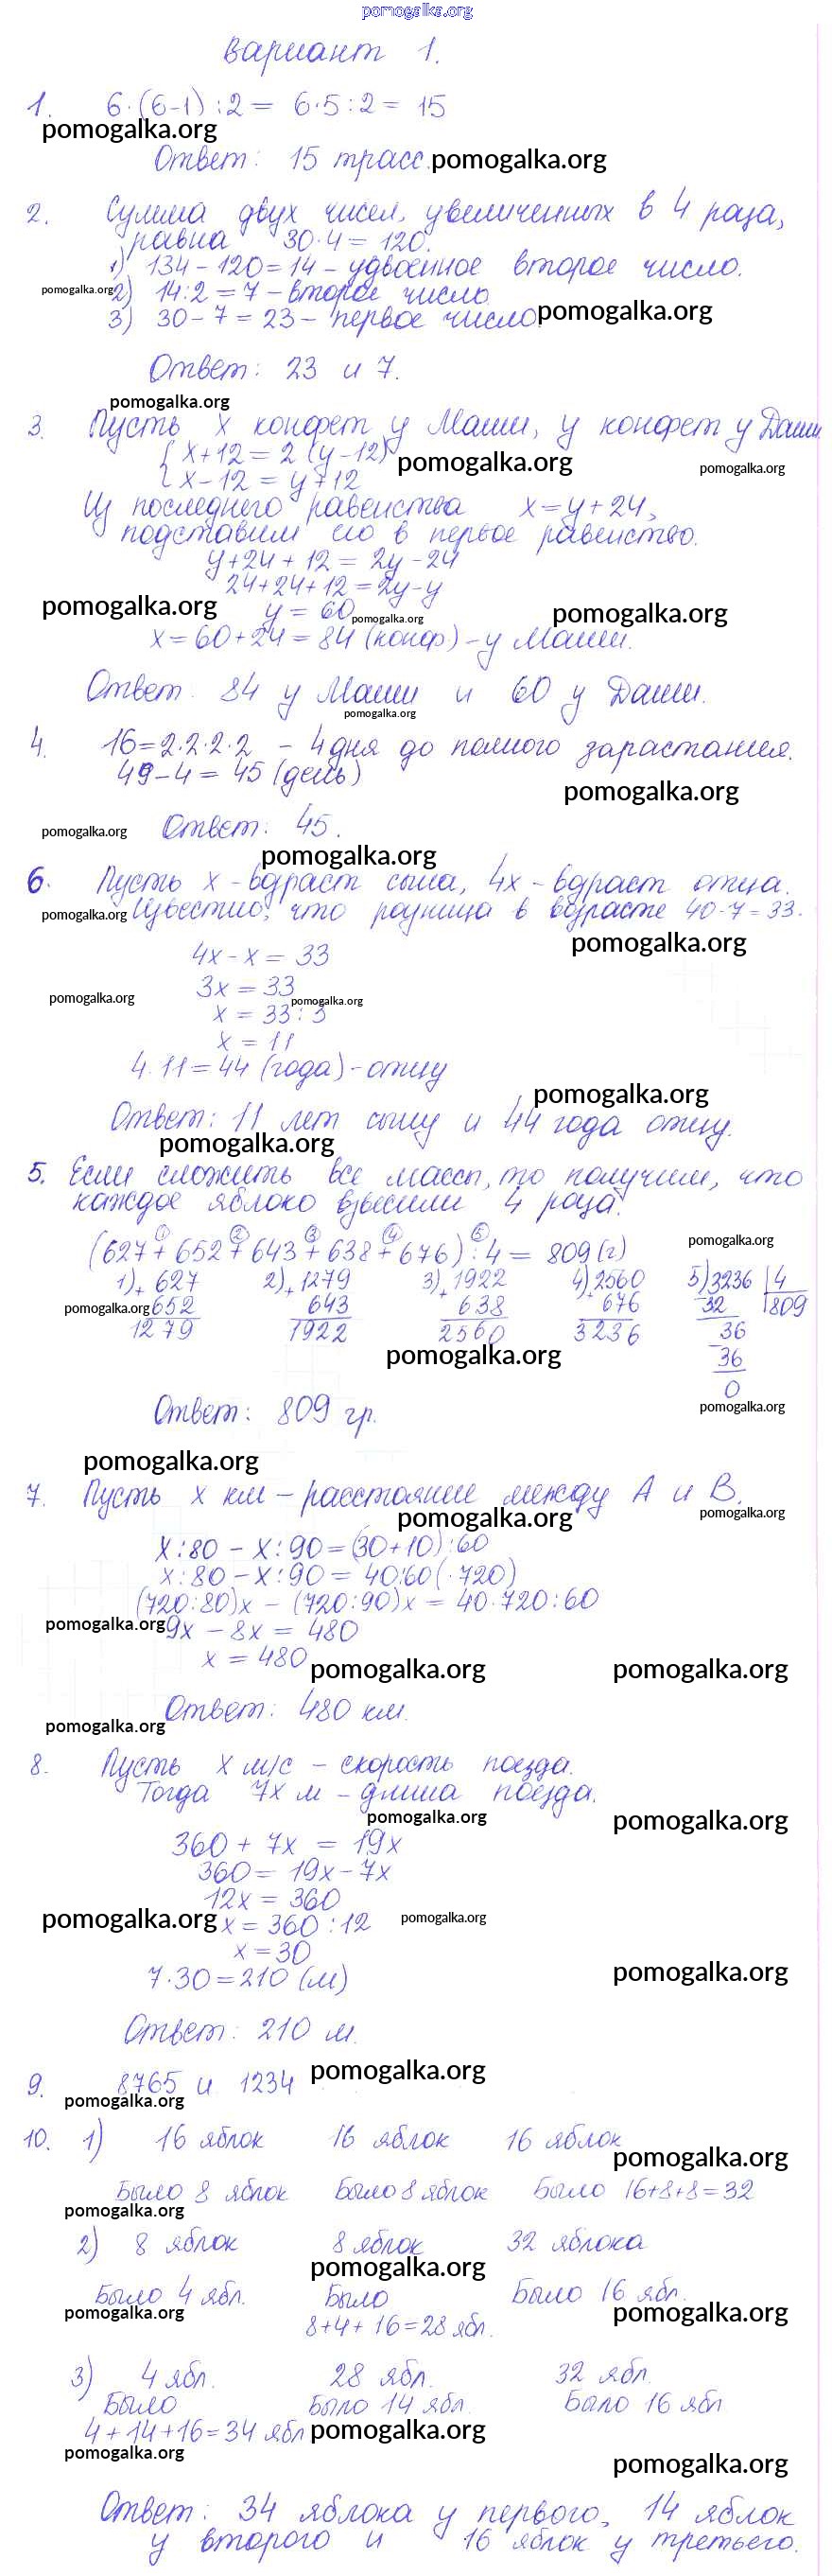 pomogalka.org
Вариант 1.
1. 6·(6-1):2= 6·5:2= 15
pomogalka.org
Ответ: 15 трасс. pomogalka.org
2. Сумма двух чисел, увеличенных в 4 раза,
равна 30·4=120.
1) 134-120=14 - удвоенное второе число.
pomogalka.org 2) 14:2=7 - второе число
3) 30-7=23 - первое число. pomogalka.org
Ответ: 23 и 7.
pomogalka.org
3. Пусть x конфет у Маши, y конфет у Даши
{ x+12=2(y-12) pomogalka.org pomogalka.org
{ x-12=y+12
Из последнего равенства x=y+24,
подставим его в первое равенство.
y+24+12=2y-24
24+24+12=2y-y
pomogalka.org y=60 pomogalka.org pomogalka.org
x=60+24=84 (конф) - у Маши.
Ответ. 84 у Маши и 60 у Даши.
pomogalka.org
4. 16=2·2·2·2 - 4 дня до полного зарастания.
49-4=45 (день)
pomogalka.org
pomogalka.org Ответ: 45.
pomogalka.org
6. Пусть x - возраст сына, 4x - возраст отца.
pomogalka.org Известно, что разница в возрасте 40-7=33.
pomogalka.org
4x-x=33
3x=33
pomogalka.org pomogalka.org
x=33:3
x=11
4·11=44 (года) - отцу
pomogalka.org
Ответ: 11 лет сыну и 44 года отцу.
pomogalka.org
5. Если сложить все массы, то получим, что
каждое яблоко взвесили 4 раза.
1 2 3 4 5
(627+652+643+638+676):4=809(г) pomogalka.org
1)+627 2)+1279 3)+1922 4)+2560 5)3236 |4
pomogalka.org 652 643 638 676 -32 809
1279 1922 2560 3236 -36
pomogalka.org 36
0
Ответ: 809 гр. pomogalka.org
pomogalka.org
7. Пусть x км - расстояние между A и B.
pomogalka.org pomogalka.org
x:80-x:90=(30+10):60
x:80-x:90=40:60(·720)
(720:80)x-(720:90)x=40·720:60
pomogalka.org 9x-8x=480
x=480 pomogalka.org pomogalka.org
Ответ: 480 км.
pomogalka.org
8. Пусть x м/с - скорость поезда.
Тогда 7x м - длина поезда.
pomogalka.org pomogalka.org
360+7x=19x
360=19x-7x
12x=360
pomogalka.org x=360:12 pomogalka.org
x=30
7·30=210 (м) pomogalka.org
Ответ: 210 м.
pomogalka.org
9. 8765 и 1234
pomogalka.org
10. 1) 16 яблок 16 яблок 16 яблок
pomogalka.org
Было 8 яблок Было 8 яблок Было 16+8+8=32
pomogalka.org
2) 8 яблок 8 яблок 32 яблока
pomogalka.org
Было 4 ябл. Было Было 16 ябл.
pomogalka.org 8+4+16=28 ябл. pomogalka.org
3) 4 ябл. 28 ябл. 32 ябл.
Было Было 14 ябл. Было 16 ябл
4+14+16=34 ябл pomogalka.org
pomogalka.org
pomogalka.org
Ответ: 34 яблока у первого, 14 яблок
у второго и 16 яблок у третьего.